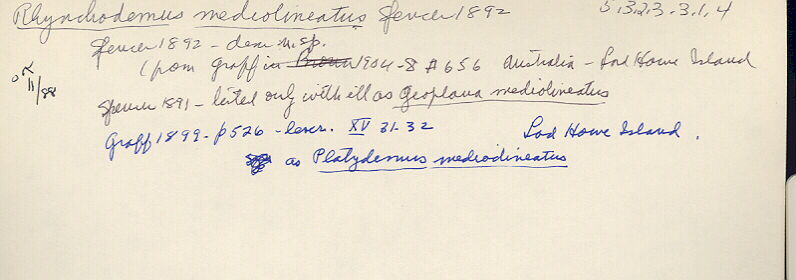 Rhynchodemus mediolineatus Spencer 1892 5.3.2.3.3.1.4
Spencer 1892 - descr. n. sp.
(from Graff in 1904-8 # 656 Australia - Lord Howe Island
OK
11/88
Spencer 1891 - listed only with ill as Geoplana mediolineatus
Graff 1899 - p 526 - descr. XV 31-32 Lord Howe Island.
as Platydemus mediolineatus